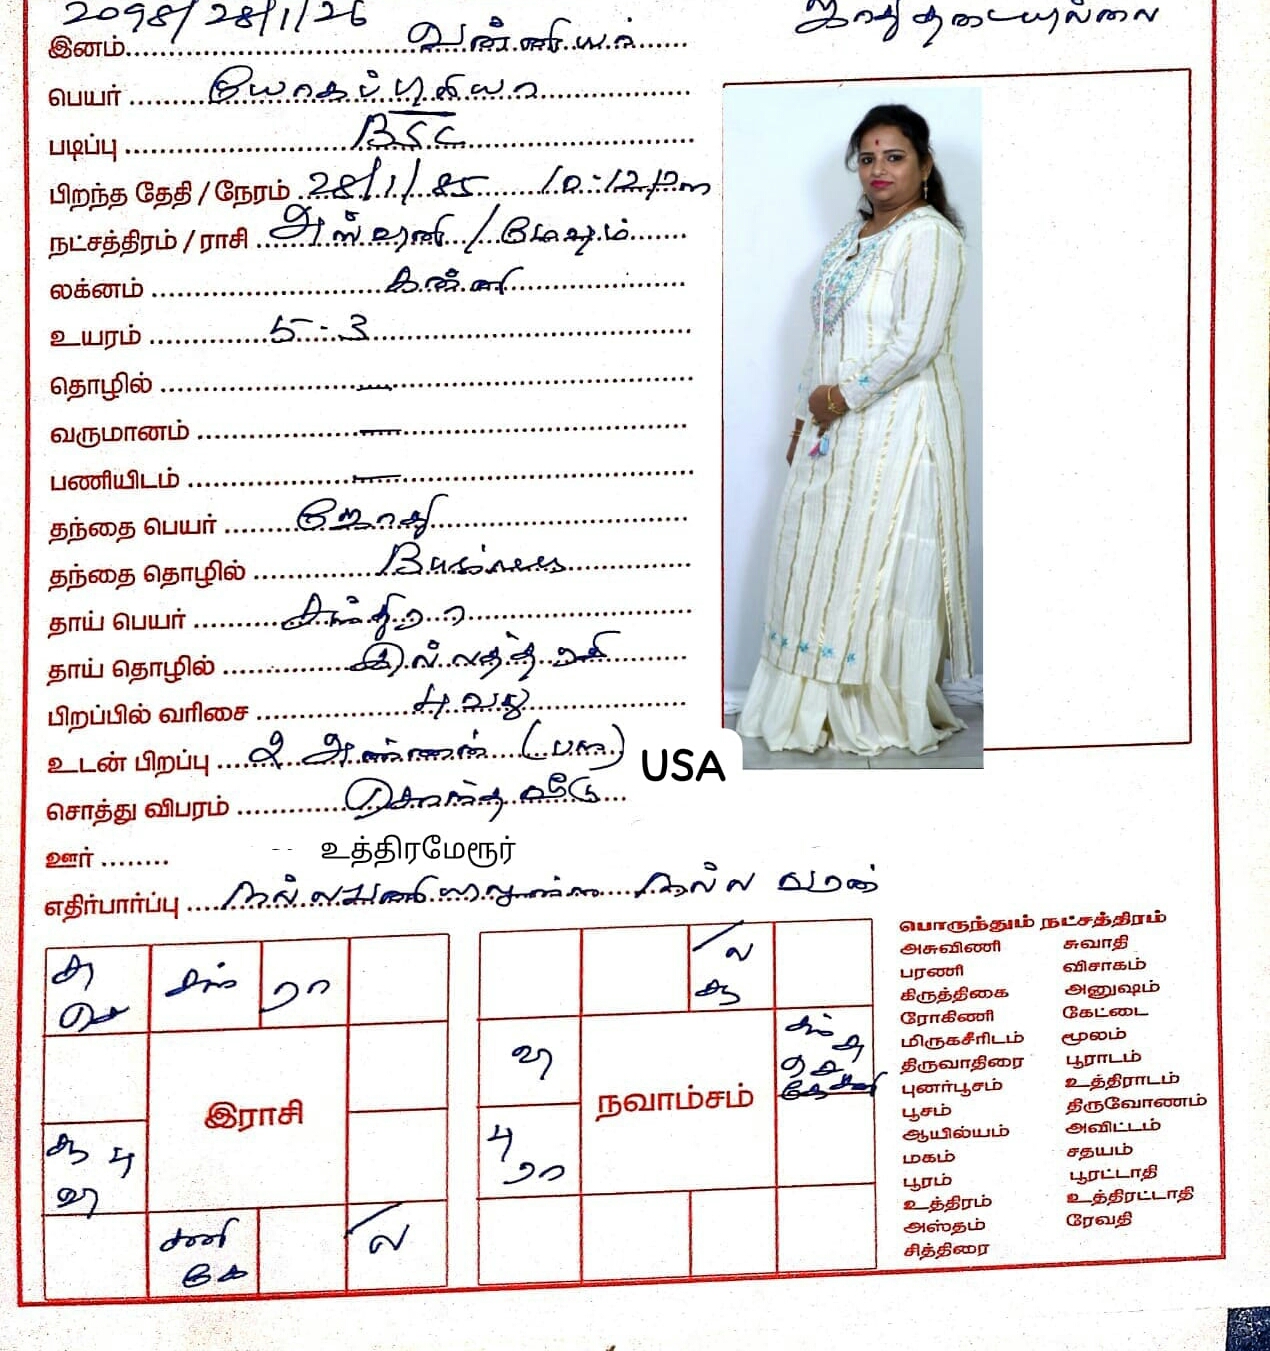 2098/28/1/26
இனம் வன்னியர்
பெயர் யோகப்பிரியா
படிப்பு BSC
பிறந்த தேதி / நேரம் 28/1/85 10-12 Pm
நட்சத்திரம் / ராசி அஸ்வனி / மேஷம்
லக்னம் கன்னி
உயரம் 5-3
தொழில் —
வருமானம் —
பணியிடம் —
தந்தை பெயர்
தந்தை தொழில் Business
தாய் பெயர் சந்திரா
தாய் தொழில் இல்லத்தரசி
பிறப்பில் வரிசை 4வது
உடன் பிறப்பு 2 அண்ணன்
USA
சொத்து விபரம் சொந்த வீடு
ஊர் ........ -- உத்திரமேரூர்
எதிர்பார்ப்பு நல்ல வரன்
பொருந்தும் நட்சத்திரம்
அசுவிணி சுவாதி
பரணி விசாகம்
கிருத்திகை அனுஷம்
ரோகிணி கேட்டை
மிருகசீரிடம் மூலம்
திருவாதிரை பூராடம்
புனர்பூசம் உத்திராடம்
பூசம் திருவோணம்
ஆயில்யம் அவிட்டம்
மகம் சதயம்
பூரம் பூரட்டாதி
உத்திரம் உத்திரட்டாதி
அஸ்தம் ரேவதி
சித்திரை
சு சந் ரா
செ
இராசி
சூ பு
வி
சனி ல
கே
ல
சூ
வி சந் சு
செ
கே சனி
நவாம்சம்
பு
ரா